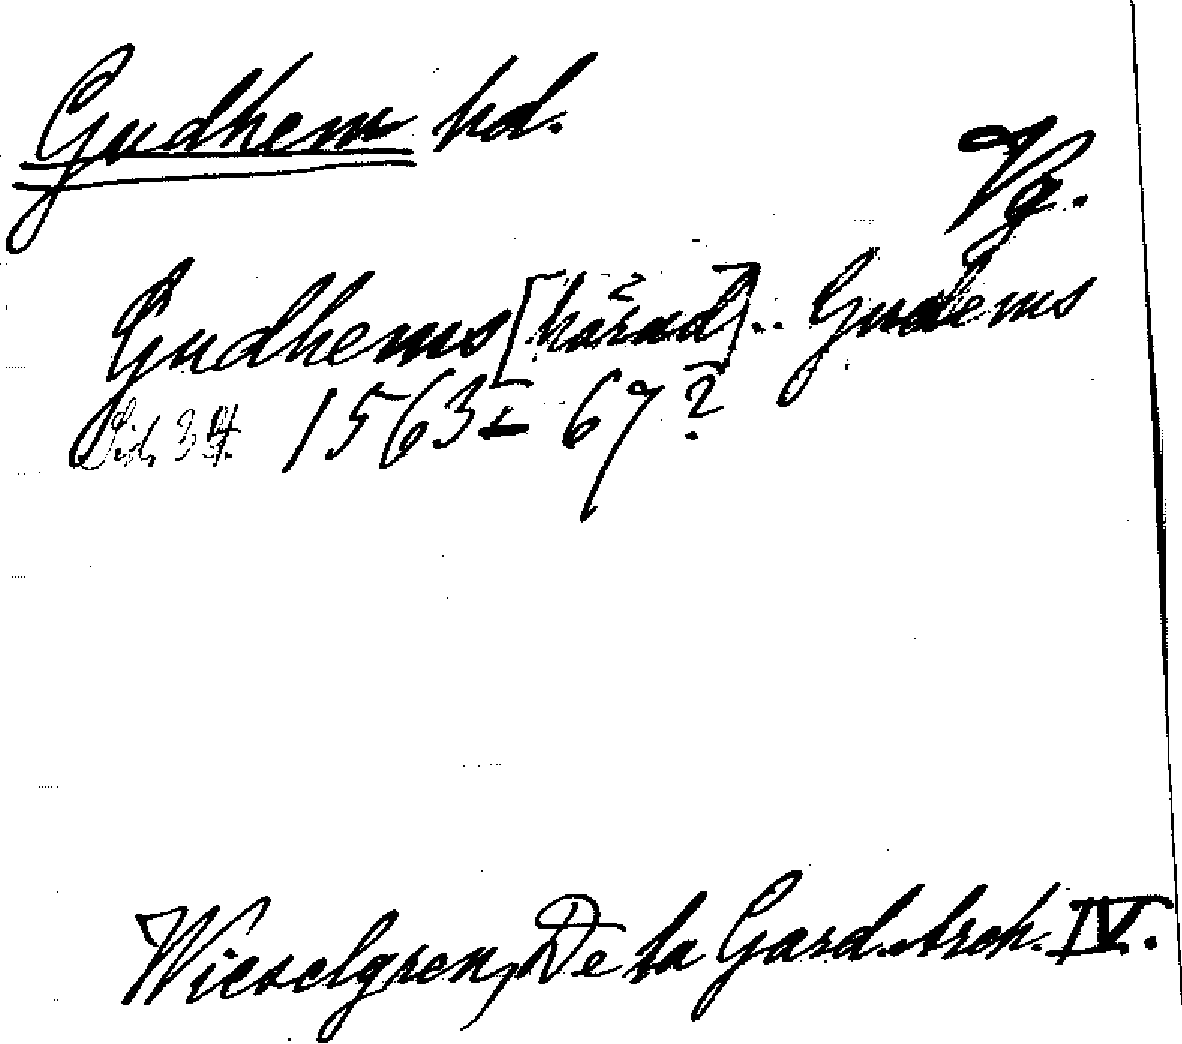 Gudhem hd.
Vg.
Gudhems [härad].. Gudems
Sid. 34. 1563 - 67?
Wieselgren, De la Gard. Arch. IV.